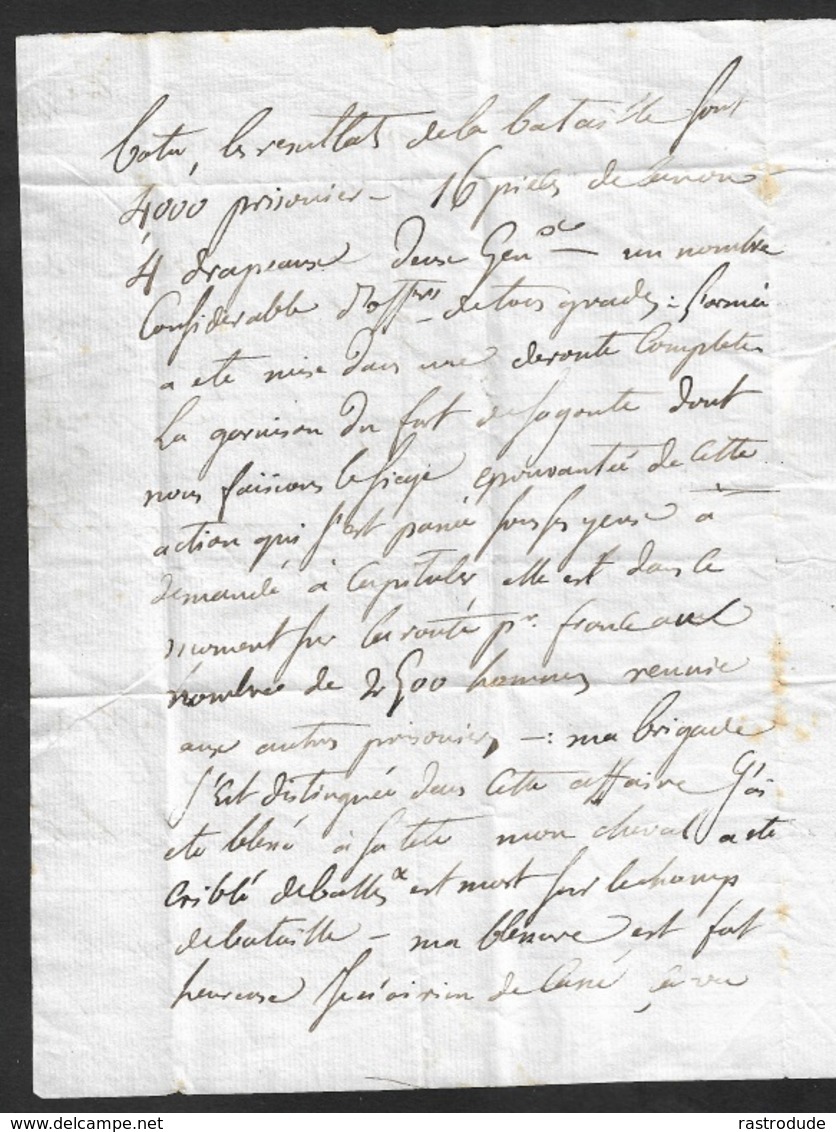 batu, les resultats de la bataille sont
4000 prisonier - 16 pieces de canon
4 drapeaux deux Genaux - un nombre
Considerable d'offers de tous grades : l'armée
a ete mise dans une deroute Complete
La garnison du fort de Sagonte dont
nous faisions le siege epouvantée de cette
action qui s'est passée sous ses yeux à
demandé à Capituler, elle est dans ce
moment sur la route pr. france au
nombre de 2500 hommes reunie
aux autres prisoniers, - : ma brigade
s'Est distinguée dans cette affaire J'ai
ete blessé à la tete mon cheval a ete
Criblé de balles & est mort sur le champ
de bataille - ma blessure est fort
heureuse Je n'ai rien de cassé, ça va
www.delcampe.net
rastrodude